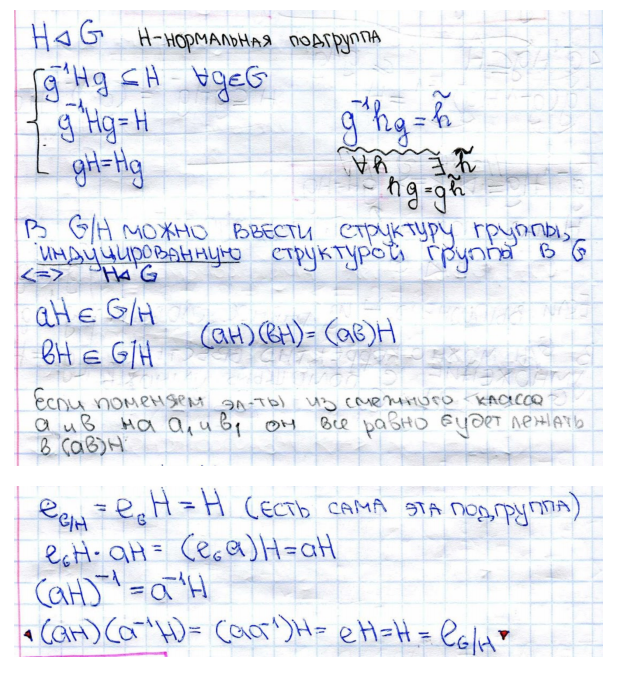 H ⊲ G H-НОРМАЛЬНАЯ ПОДГРУППА
g⁻¹Hg ⊆ H ∀g∈G
g⁻¹Hg = H
gH = Hg
g⁻¹hg = h̃
∀h ∃ h̃
hg = gh̃
В G/H МОЖНО ВВЕСТИ СТРУКТУРУ ГРУППЫ,
ИНДУЦИРОВАННУЮ СТРУКТУРОЙ ГРУППА В G
<=> H⊲G
aH ∈ G/H
вH ∈ G/H
(aH)(вH) = (aв)H
Если поменяем эл-ты из смежного класса
a и в на a₁ и в₁ он все равно будет лежать
в (aв)H
e_G/H = e_G H = H (ЕСТЬ САМА ЭТА ПОДГРУППА)
e_G H · aH = (e_G a)H = aH
(aH)⁻¹ = a⁻¹H
◂ (aH)(a⁻¹H) = (aa⁻¹)H = eH = H = e_G/H ▾